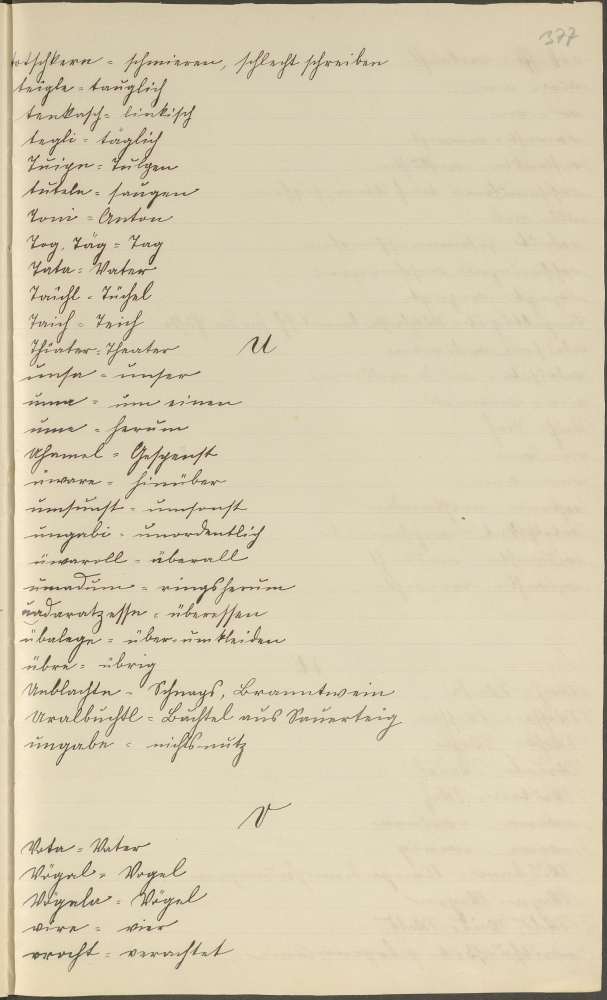 377
totschkern = schmieren, schlecht schreiben
teigle = tauglich
tenkasch = linkisch
tegli = täglich
Tuipn = Tulpen
tuteln = saugen
Toni = Anton
Tog, Täg = Tag
Tata = Vater
Taichl = Tüchel
Taich = Teich
Thiater = Theater
U
unsa = unser
uma = um einen
ume = herum
Uhamel = Gespenst
üware = hinüber
umsunst = umsonst
ungabi = unordentlich
üwaroll = überall
umadum = ringsherum
übalege = über-umkleiden
übre = übrig
Ueblachte = Schnaps, Branntwein
Uralbuchtl = Buchtel aus Sauerteig
ungabe = nichtsnutz
V
Vota = Vater
Vogal = Vogel
Vögala = Vögel
vire = vier
vrocht = verachtet